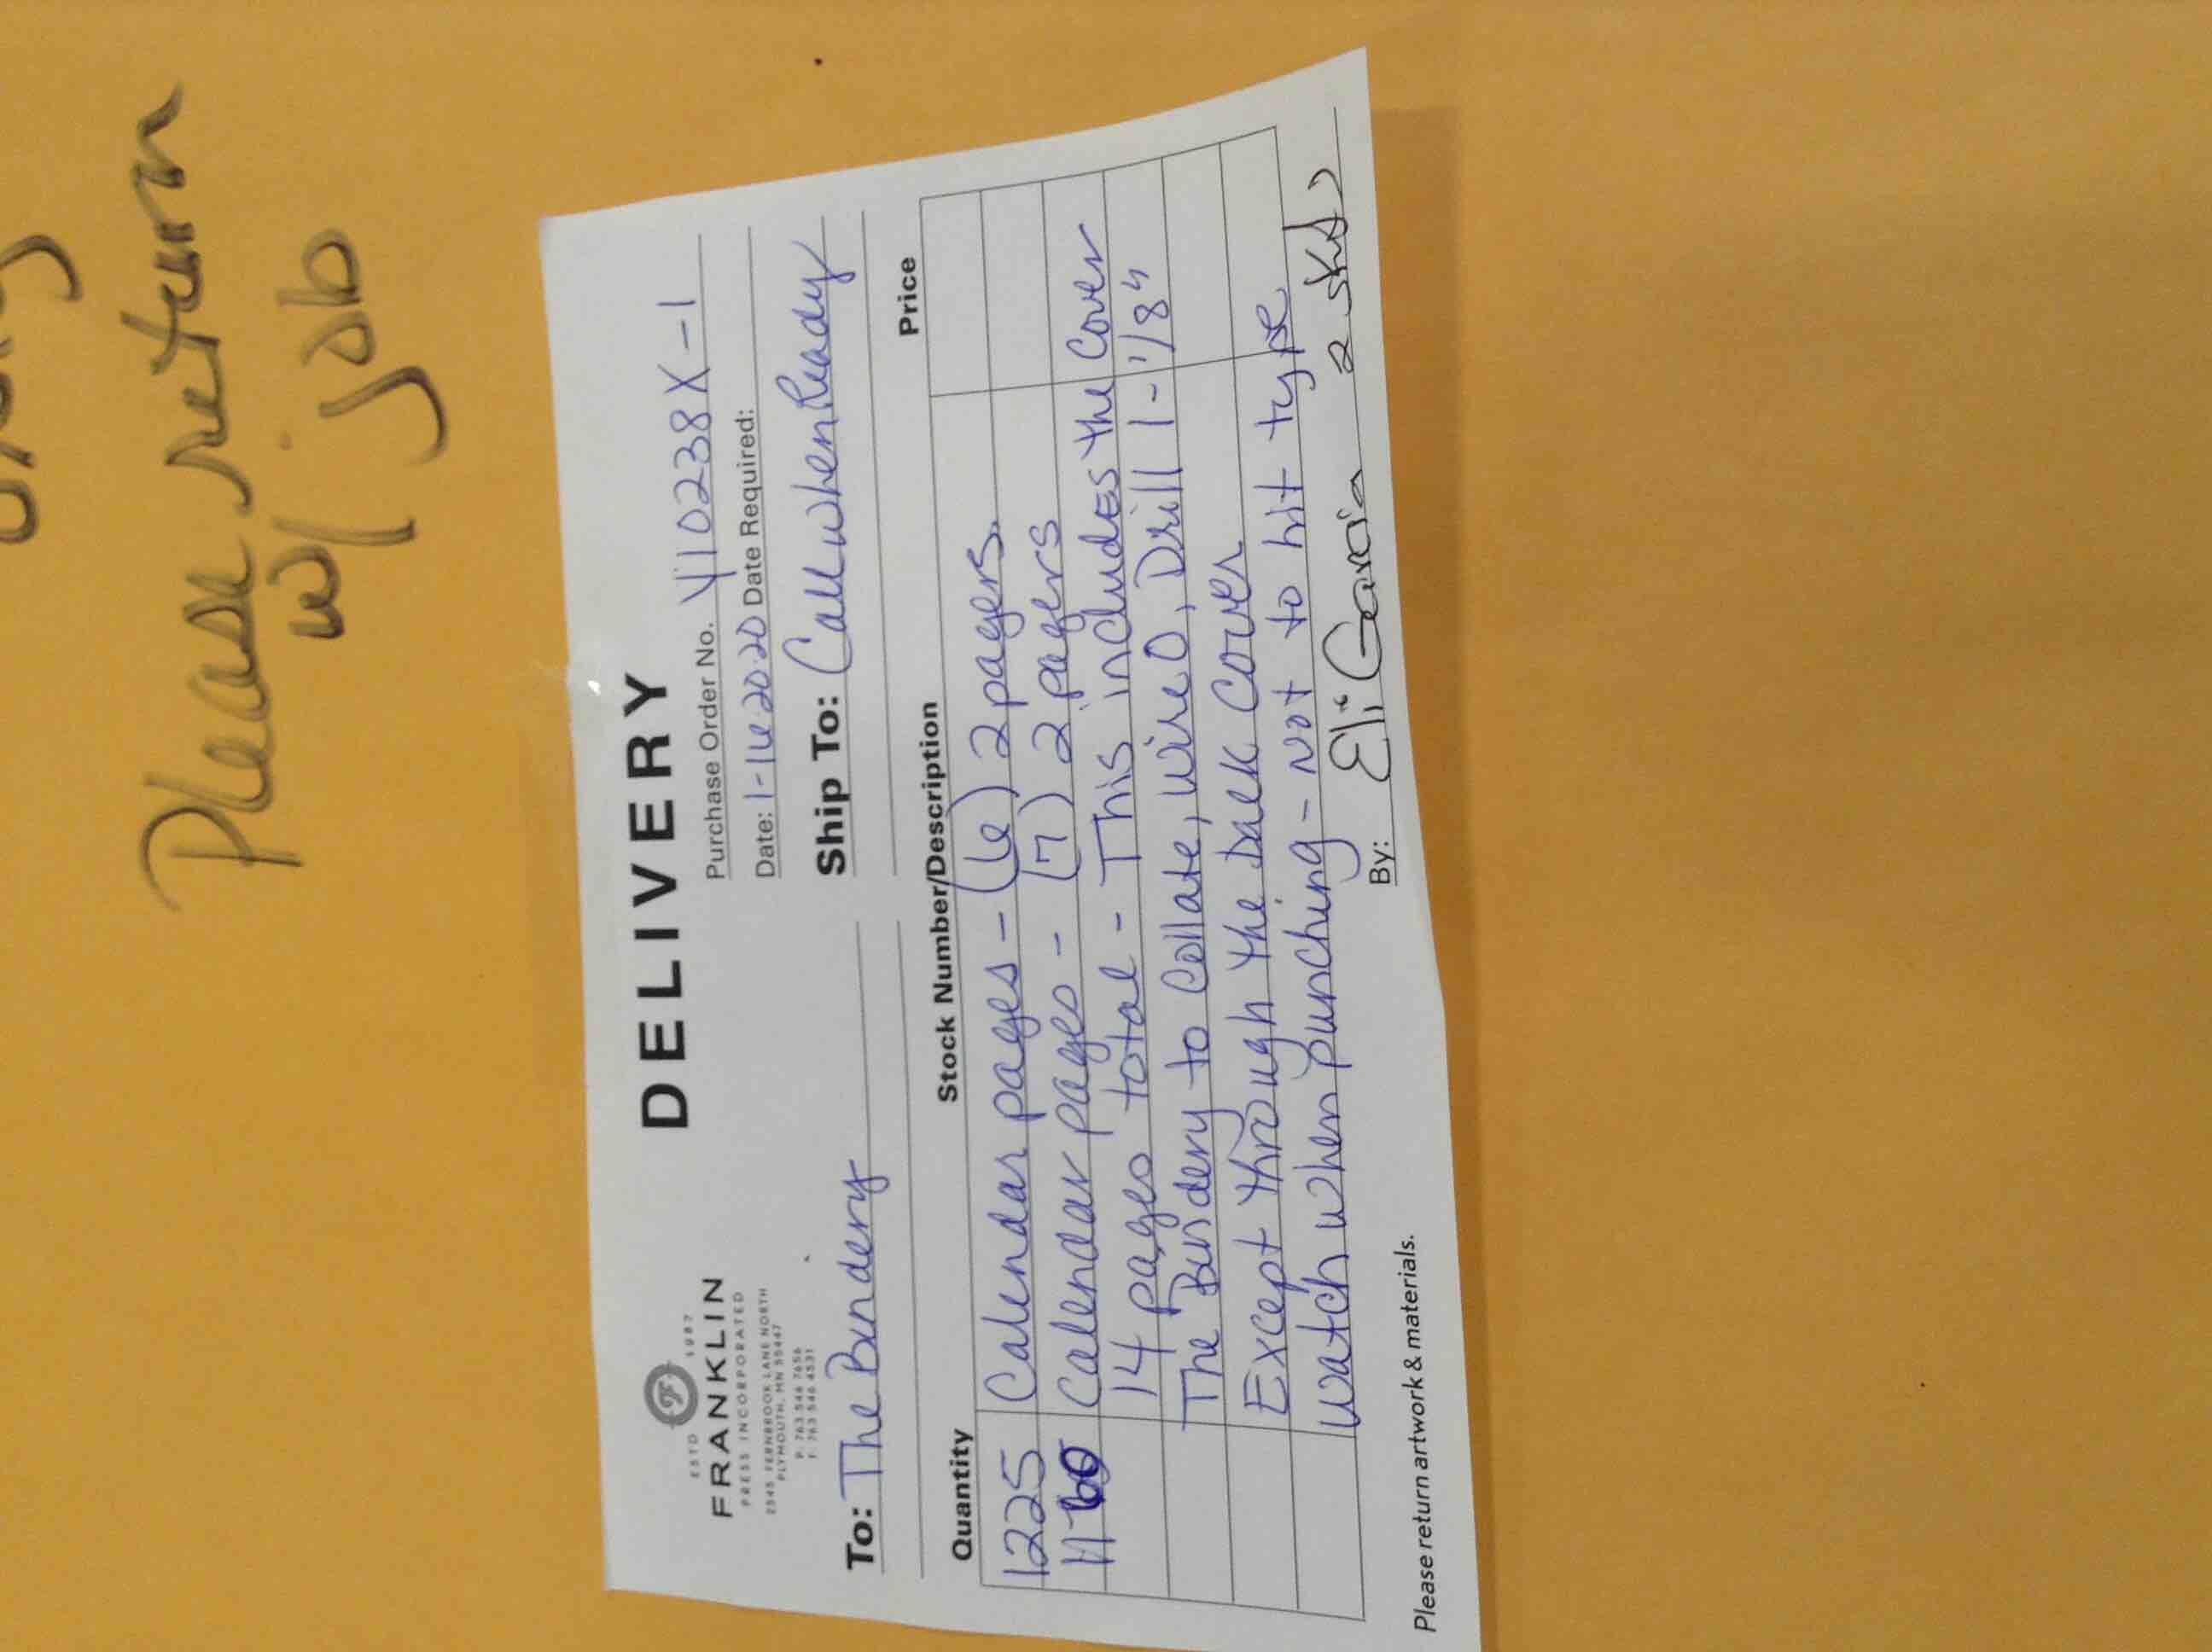 Please return
w/ job
DELIVERY
ESTD 1987
FRANKLIN
PRESS INCORPORATED
2545 FERNBROOK LANE NORTH
PLYMOUTH, MN 55447
P: 763 546 7656
F: 763 546 4531
Purchase Order No. Y10238X-1
Date: 1-16 2020 Date Required:
To: The Bindery
Ship To: Call when Ready
Quantity Stock Number/Description Price
1225 Calendar pages - (6) 2 pagers
Calendar pages - (7) 2 pagers
14 pages total - This includes the Cover
The Bindery to Collate, wireO, Drill 1-1/8"
Except through the back cover
watch when punching - Not to hit type
Please return artwork & materials.
By: Eli Garcia 2 skds